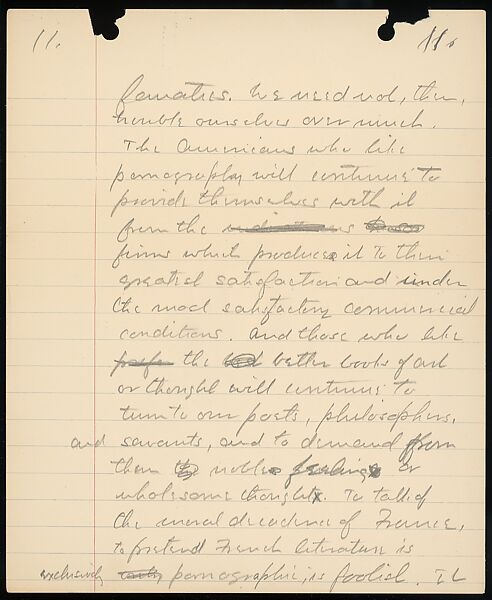 11. 11.
fanatics. We need not, then,
trouble ourselves overmuch.
The Americans who like
pornography will continue to
provide themselves with it
from the
firms which produce it to their
greatest satisfaction and under
the most satisfactory commercial
conditions. And those who like
the better books of art
or thought will continue to
turn to our poets, philosophers,
and savants, and to demand from
them noble feelings or
wholesome thought. To talk of
the moral decadence of France,
to pretend French literature is
exclusively only pornographic, is foolish. It